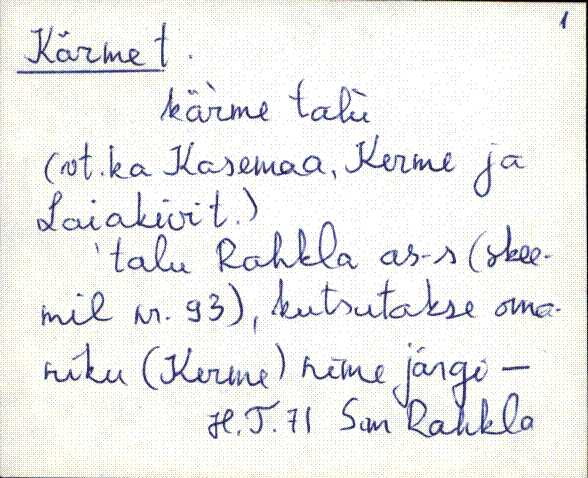 1
Kärme t.
kä̀rme talù
(vt. ka Kasemaa, Kerme ja
Laiakivi t.)
'talu Rahkla as-s (skee-
mil nr. 93), kutsutakse oma-
niku (Kerme) nime järgi —
H.T. 71 Sim Rahkla